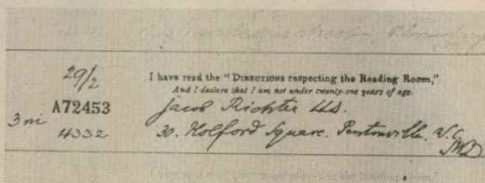 29/2
I have read the "DIRECTIONS respecting the Reading Room,"
And I declare that I am not under twenty-one years of age.
A72453
Jacob Richter LL.D.
3 m
4332
30. Holford Square. Pentonville. W.C.